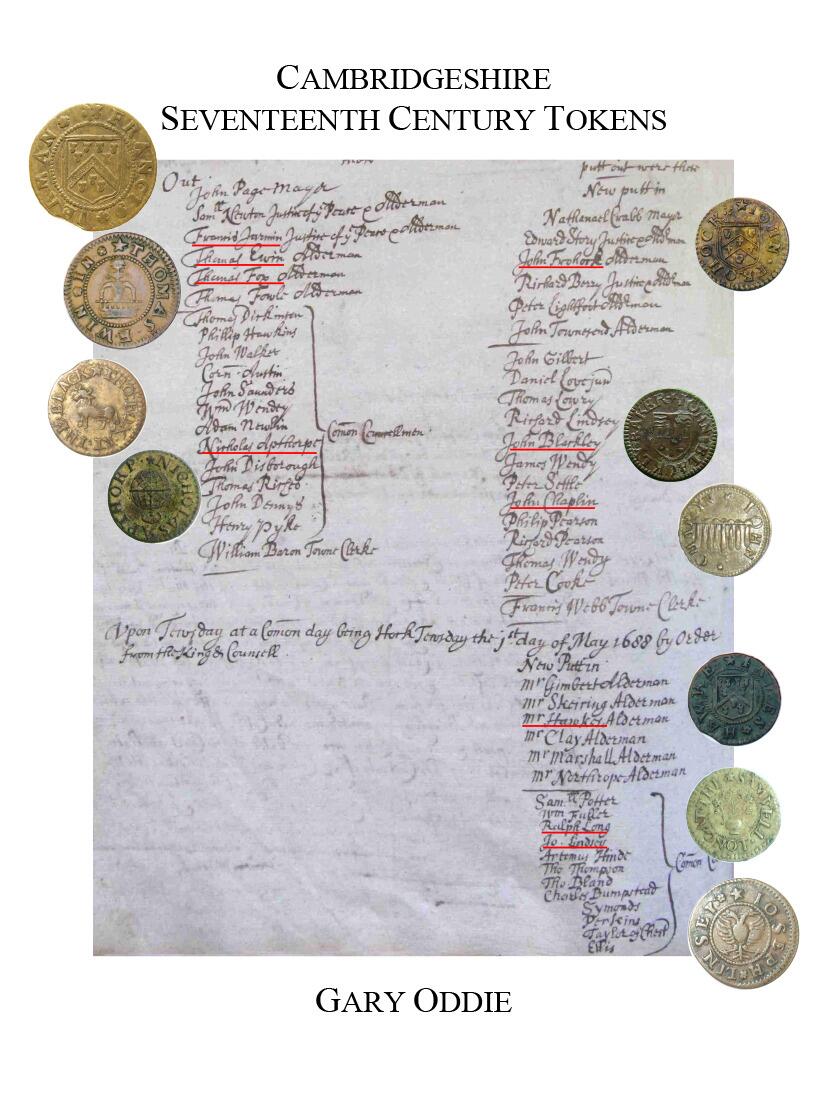 CAMBRIDGESHIRE
SEVENTEENTH CENTURY TOKENS
Out
John Page Mayor
Samll Newton Justice of ye Peace & Alderman
Francis Jermin Justice of ye Peace & Alderman
Thomas Ewin Alderman
Thomas Fox Alderman
Thomas Fowle Alderman
Thomas Dickinson
Phillip Hawkins
John Walker
Corn: Austin
John Saunders
Wm Wendey
Adam Newlin
Nicholas Apthorpe
John Disborough
Thomas
John Dennys
Henry Pyke
Comon Councellmen
William Baron Towne Clerke
putt out were these
New putt in
Nathanael Crabb Mayr
Edward Story Justice & Aldman
John Frohock Alderman
Richard Berry Justice & Aldman
Peter Lightfoot Alderman
John Townesend Alderman
John Gilbert
Daniel Love
Thomas Lowry
Richard Lindsey
John Blackley
James Wendy
Peter Settle
John Chaplin
Philip Pearson
Richard Pearson
Thomas Wendy
Peter Cooke
Francis Webb Towne Clerke
Upon Tewsday at a Comon day being Hock Tewsday the 1st day of May 1688 by Order
from the King & Counsell
New Putt in
mr Gimbert Alderman
mr Skeiring Alderman
mr Hawkes Alderman
mr Clay Alderman
mr Marshall Alderman
mr Northrope Alderman
Samll Potter
Wm Fuller
Ralph Long
Jo. Lindsey
Artemus Hinde
Tho Thompson
Tho Bland
Charles Bumpstead
Symonds
Perkins
Taylor of Chest
Ellis
Comon
FRANCIS IERMAN
THOMAS EWIN
NICHOLAS
IOHN FROHOCK
IOSEPH LINSEY
GARY ODDIE